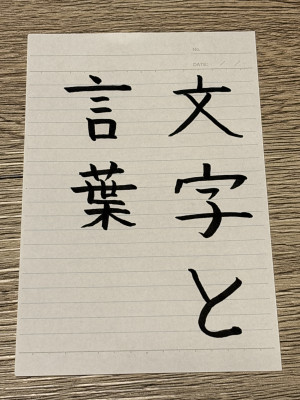 No.
DATE
文字と
言葉